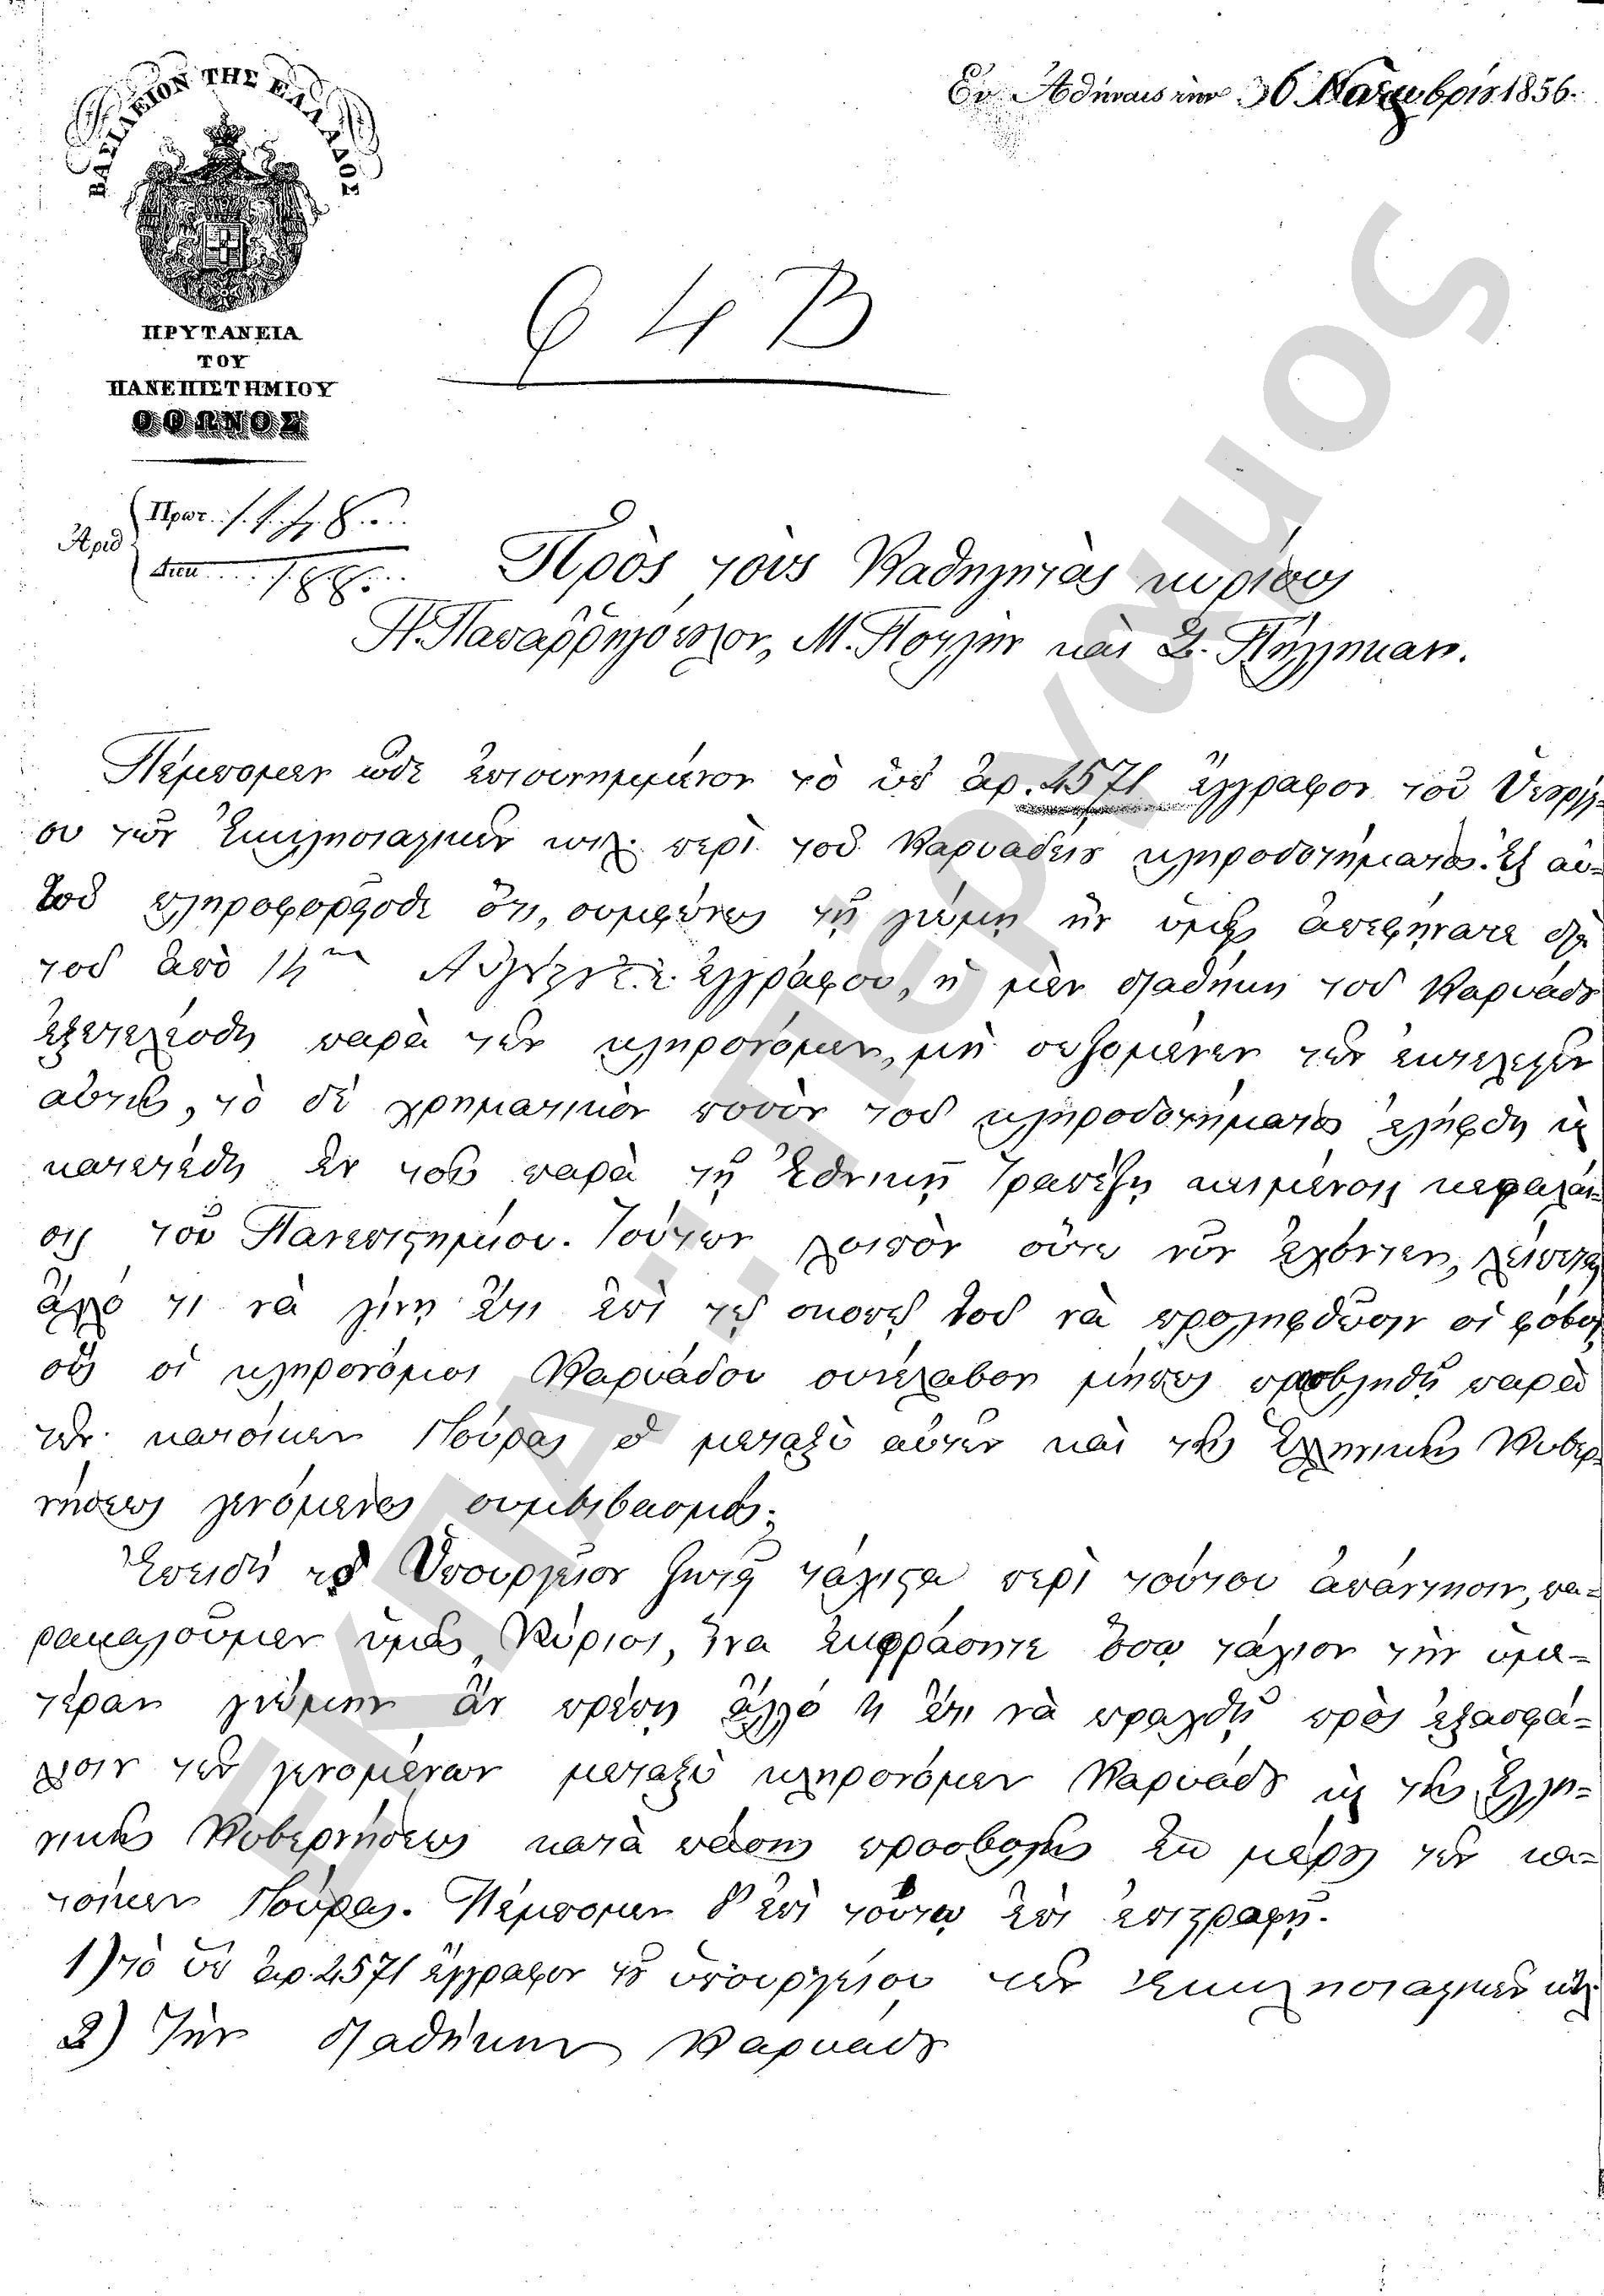 ΒΑΣΙΛΕΙΟΝ ΤΗΣ ΕΛΛΑΔΟΣ
Ἐν Ἀθήναις τὴν 30 Νοεμβρίου 1856.
64Β
ΠΡΥΤΑΝΕΙΑ
ΤΟΥ
ΠΑΝΕΠΙΣΤΗΜΙΟΥ
ΟΘΩΝΟΣ
Ἀριθ
Πρωτ.
Διεκ 188.
Πρὸς τοὺς Καθηγητὰς κυρίους
Π. Παπαρρηγόπουλον, Μ. Ποτλὴν καὶ Σ. Πήλληκαν.
Πέμπομεν ὧδε ἐπισυνημμένον τὸ ὑπ' ἀρ. 4571 ἔγγραφον τοῦ Ὑπουργεί-
ου τῶν Ἐκκλησιαστικῶν κτλ. περὶ τοῦ Καρυαδείου κληροδοτήματος. Ἐξ αὐ-
τοῦ πληροφορεῖσθε ὅτι, συμφώνως τῇ γνώμῃ ἣν ὑμεῖς ἀπεφήνατε διὰ
τοῦ ἀπὸ Αὐγούστου ἐ.ἔ. ἐγγράφου, ἡ μὲν διαθήκη τοῦ Καρυάδου
ἐξετελέσθη παρὰ τῶν κληρονόμων, μὴ σωζομένων τῶν ἐκτελεστῶν
αὐτῆς, τὸ δὲ χρηματικὸν ποσὸν τοῦ κληροδοτήματος ἐλήφθη καὶ
κατετέθη ἐν τοῖς παρὰ τῇ Ἐθνικῇ Τραπέζῃ κειμένοις κεφαλαί-
οις τοῦ Πανεπιστημίου. Τούτων λοιπὸν οὕτω νῦν ἐχόντων, λείπεται
ἄλλο τι νὰ γίνῃ ἔτι ἐπὶ τῷ σκοπῷ τοῦ νὰ προληφθῶσιν οἱ φόβοι,
οὓς οἱ κληρονόμοι Καρυάδου συνέλαβον μήπως προσβληθῇ παρὰ
τῶν κατοίκων Πούρας ὁ μεταξὺ αὐτῶν καὶ τῆς Ἑλληνικῆς Κυβερ-
νήσεως γενόμενος συμβιβασμός;
Ἐπειδὴ τὸ Ὑπουργεῖον ζητεῖ τάχιστα περὶ τούτου ἀπάντησιν, πα-
ρακαλοῦμεν ὑμᾶς, Κύριοι, ἵνα ἐκφράσητε ὅσῳ τάχιον τὴν ὑμε-
τέραν γνώμην ἂν πρέπῃ ἄλλό τι ἔτι νὰ πραχθῇ πρὸς ἐξασφά-
λισιν τῶν γενομένων μεταξὺ κληρονόμων Καρυάδου καὶ τῆς Ἑλλη-
νικῆς Κυβερνήσεως κατὰ πάσης προσβολῆς ἐκ μέρους τῶν κα-
τοίκων Πούρας. Πέμπομεν δ' ἐπὶ τούτῳ ἐπὶ ἐπιστροφῇ.
1) τὸ ὑπ' ἀρ. 4571 ἔγγραφον τοῦ ὑπουργείου τῶν Ἐκκλησιαστικῶν κτλ
2) Τὴν διαθήκην Καρυάδου
ΕΚΠΑ: Πέργαμος